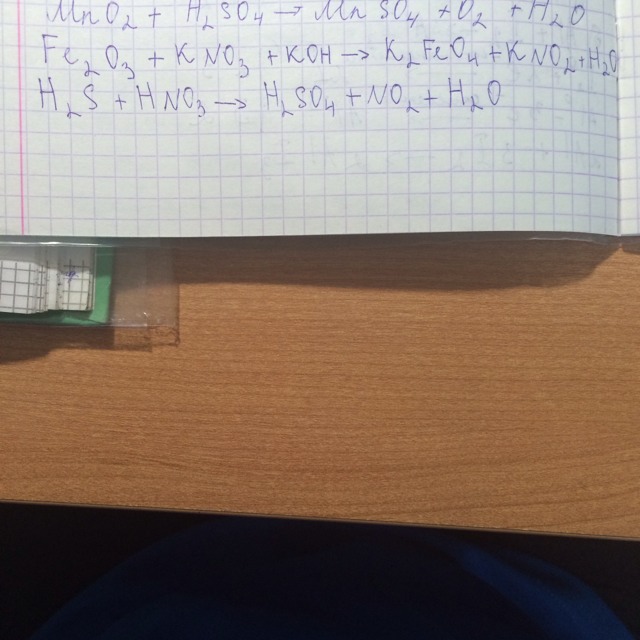 MnO₂ + H₂SO₄ → MnSO₄ + O₂ + H₂O
Fe₂O₃ + KNO₃ + KOH → K₂FeO₄ + KNO₂ + H₂O
H₂S + HNO₃ → H₂SO₄ + NO₂ + H₂O